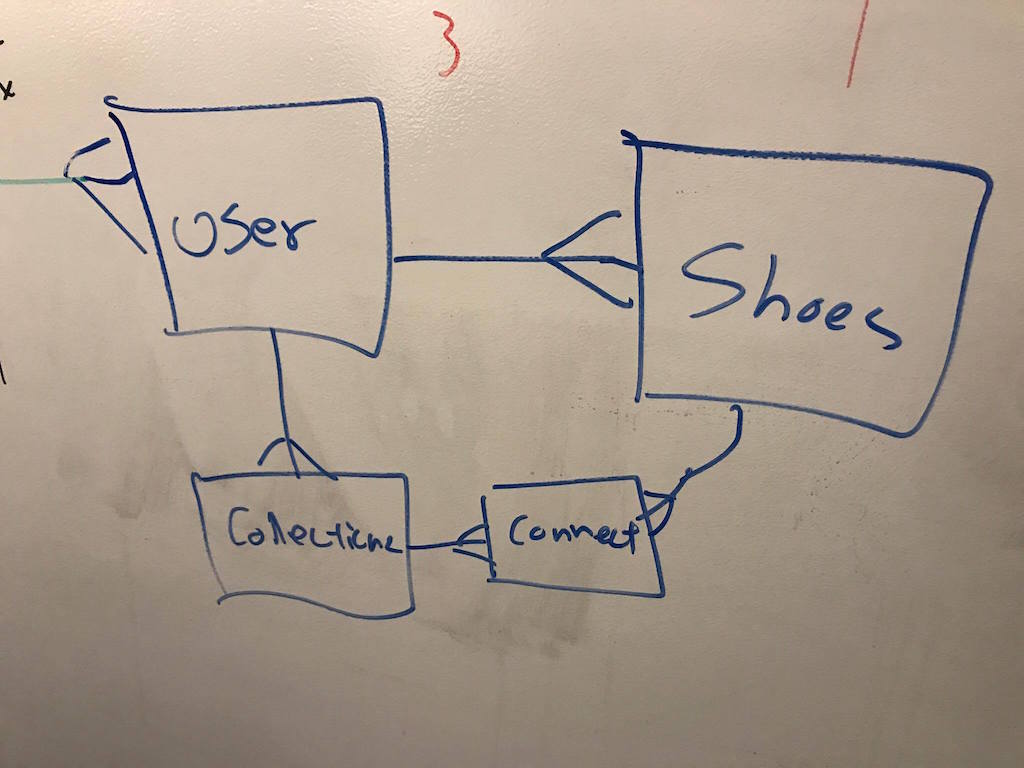 3
x
User
Shoes
Collections
Connect